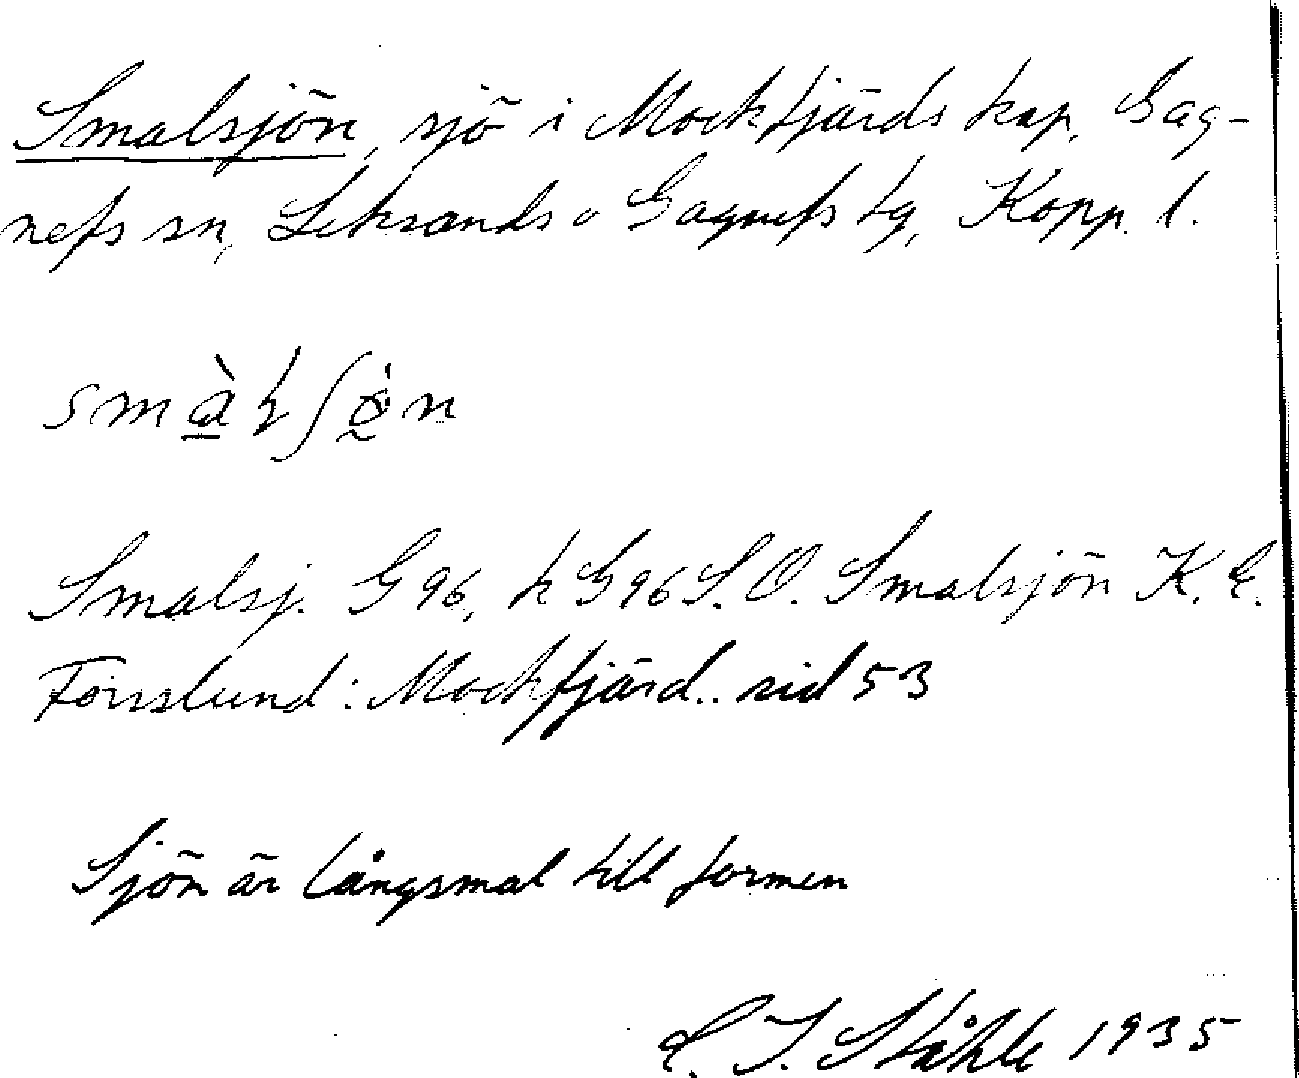 Smalsjön, sjö i Mockfjärds kap. Gag-
nefs sn, Leksands o Gagnefs tg, Kopp. l.
Smalsj. G96, k G96 S.O. Smalsjön K.E.
Forsslund: Mockfjärd.. sid 53
Sjön är långsmal till formen
C. I. Ståhle 1935